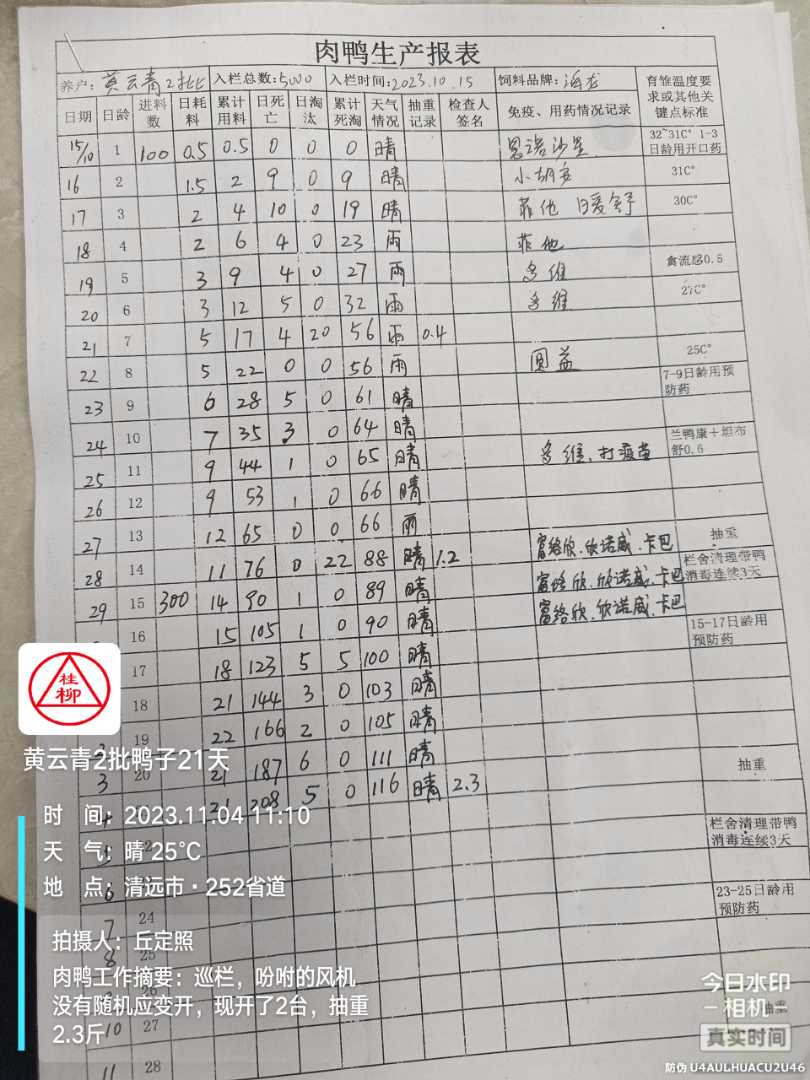 肉鸭生产报表
养户: 黄云青2批 入栏总数: 5000 入栏时间: 2023.10.15 饲料品牌: 海龙 育雏温度要求或其他关键点标准
日期 日龄 进料数 日耗料 累计用料 日死亡 日淘汰 累计死淘 天气情况 抽重记录 检查人签名 免疫、用药情况记录
15/10 1 100 0.5 0.5 0 0 0 晴 恩诺沙星 32~31C° 1-3日龄用开口药
16 2 1.5 2 9 0 9 晴 小胡安 31C°
17 3 2 4 10 0 19 晴 菲他 日爱舒 30C°
18 4 2 6 4 0 23 雨 菲他
19 5 3 9 4 0 27 雨 多维 禽流感0.5
20 6 3 12 5 0 32 雨 多维 27C°
21 7 5 17 4 20 56 雨 0.4
22 8 5 22 0 0 56 雨 圆益 25C°
23 9 6 28 5 0 61 晴 7-9日龄用预防药
24 10 7 35 3 0 64 晴
25 11 9 44 1 0 65 晴 多维、打疫苗 兰鸭康+坦布舒0.6
26 12 9 53 1 0 66 晴
27 13 12 65 0 0 66 雨
28 14 11 76 0 22 88 晴 1.2 富络欣、欣诺威、卡巴 抽重
29 15 300 14 90 1 0 89 晴 富络欣、欣诺威、卡巴 栏舍清理带鸭消毒连续3天
16 15 105 1 0 90 晴 富络欣、欣诺威、卡巴
17 18 123 5 5 100 晴 15-17日龄用预防药
18 21 144 3 0 103 晴
19 22 166 2 0 105 晴
3 20 21 187 6 0 111 晴
4 21 208 5 0 116 晴 2.3 抽重
栏舍清理带鸭消毒连续3天
6
7 24 23-25日龄用预防药
8 25
26
10 27 抽重
11 28
桂柳
黄云青2批鸭子21天
时 间: 2023.11.04 11:10
天 气: 晴 25℃
地 点: 清远市·252省道
拍摄人: 丘定照
肉鸭工作摘要: 巡栏，吩咐的风机
没有随机应变开，现开了2台，抽重
2.3斤
今日水印
-相机-
真实时间
防伪 U4AULHUACU2U46